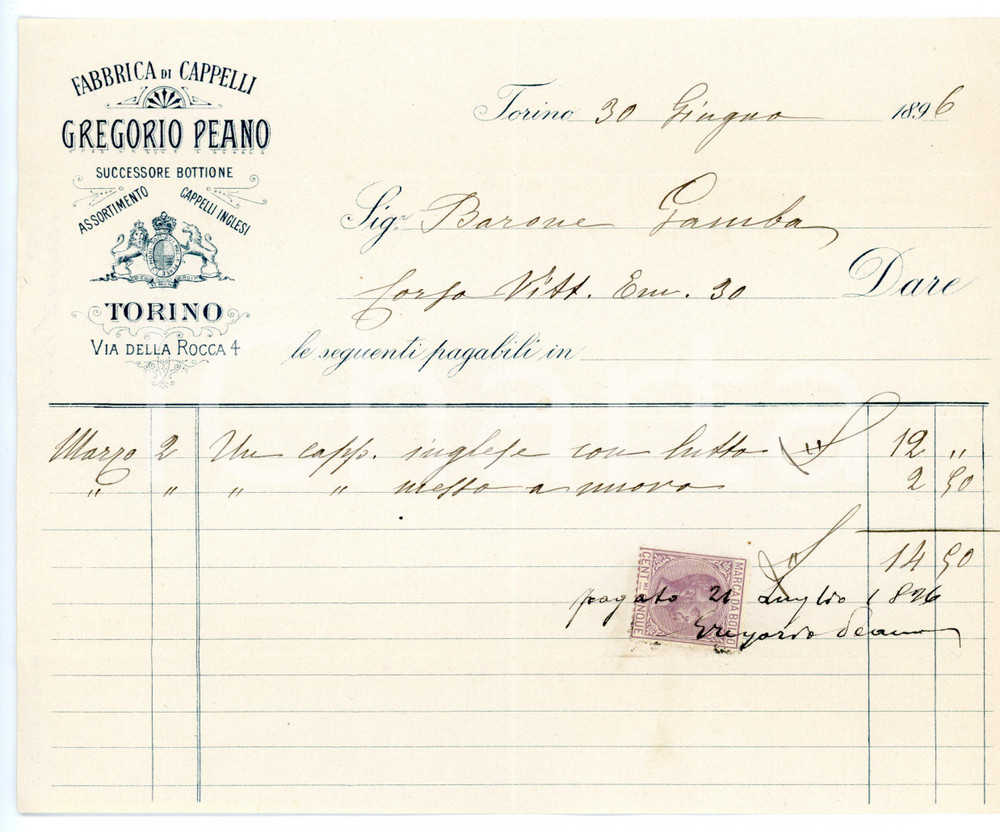 FABBRICA DI CAPPELLI
GREGORIO PEANO
SUCCESSORE BOTTIONE
ASSORTIMENTO CAPPELLI INGLESI
TORINO
VIA DELLA ROCCA 4
Torino 30 Giugno 1896
Sig.r Barone Gamba
Corso Vitt. Em. 30 Dare
le seguenti pagabili in
Marzo 2 Un capp. inglese con lutto 12 "
" " " " messo a nuovo 2 50
14 50
MARCA DA BOLLO
CENT.MI CINQUE
pagato 21 Luglio 1896
Gregorio Peano